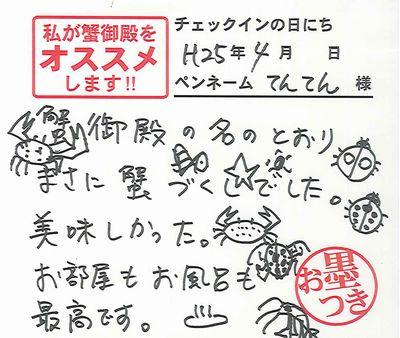 私が蟹御殿を
オススメ
します!!
チェックインの日にち
H25年4月 日
ペンネーム てんてん 様
蟹御殿の名のとおり
まさに蟹づくしでした。
美味しかった。
お部屋もお風呂も
最高です。
お墨つき